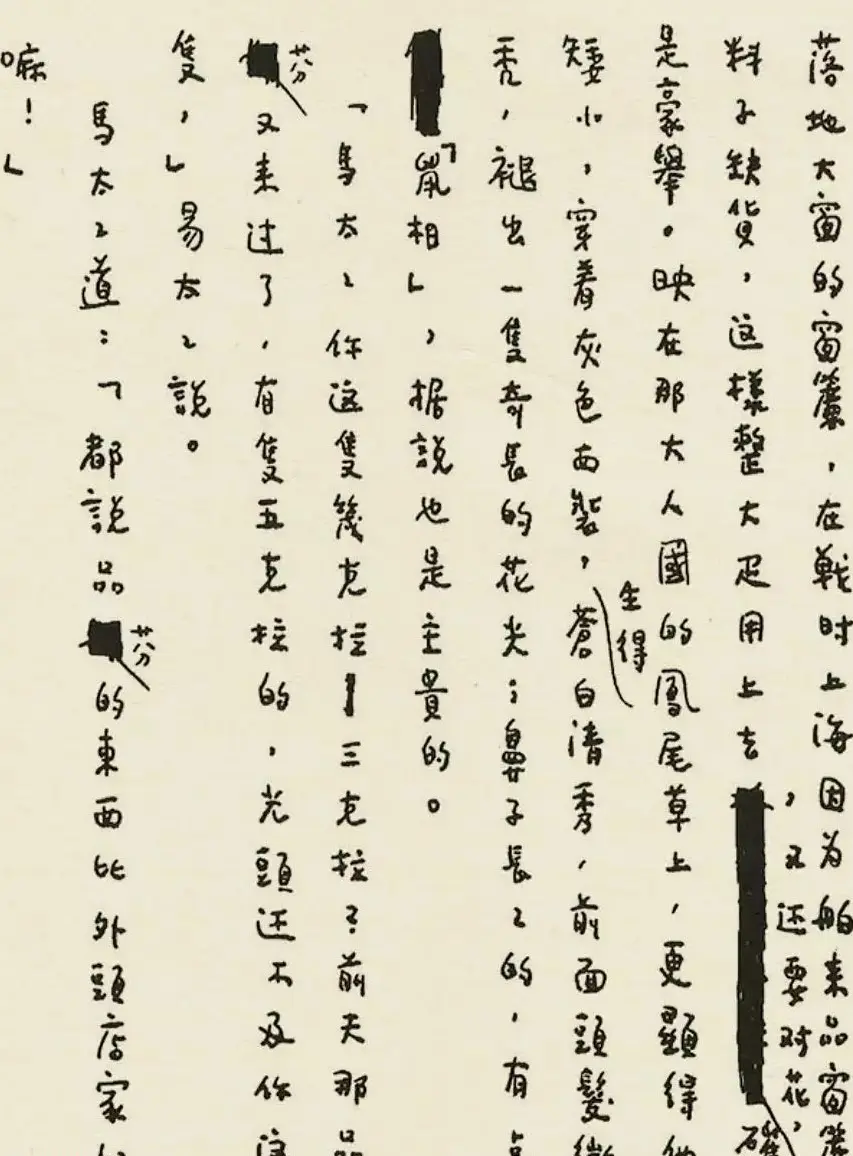 落地大窗的窗簾，在戰时上海因为舶来品窗簾
料子缺貨，这樣整大疋用上去，又还要对花，確
是豪舉。映在那大人國的鳳尾草上，更顯得他
矮小，穿着灰色西裝，生得蒼白清秀，前面頭髮微
禿，褪出一隻奇長的花尖；鼻子長々的，有点
「鼠相」，据説也是主貴的。
「馬太々你这隻幾克拉——三克拉？前天那品
芬又来过了，有隻五克拉的，光頭还不及你这
隻，」易太々説。
馬太々道：「都説品芬的東西比外頭店家好
嘛！」